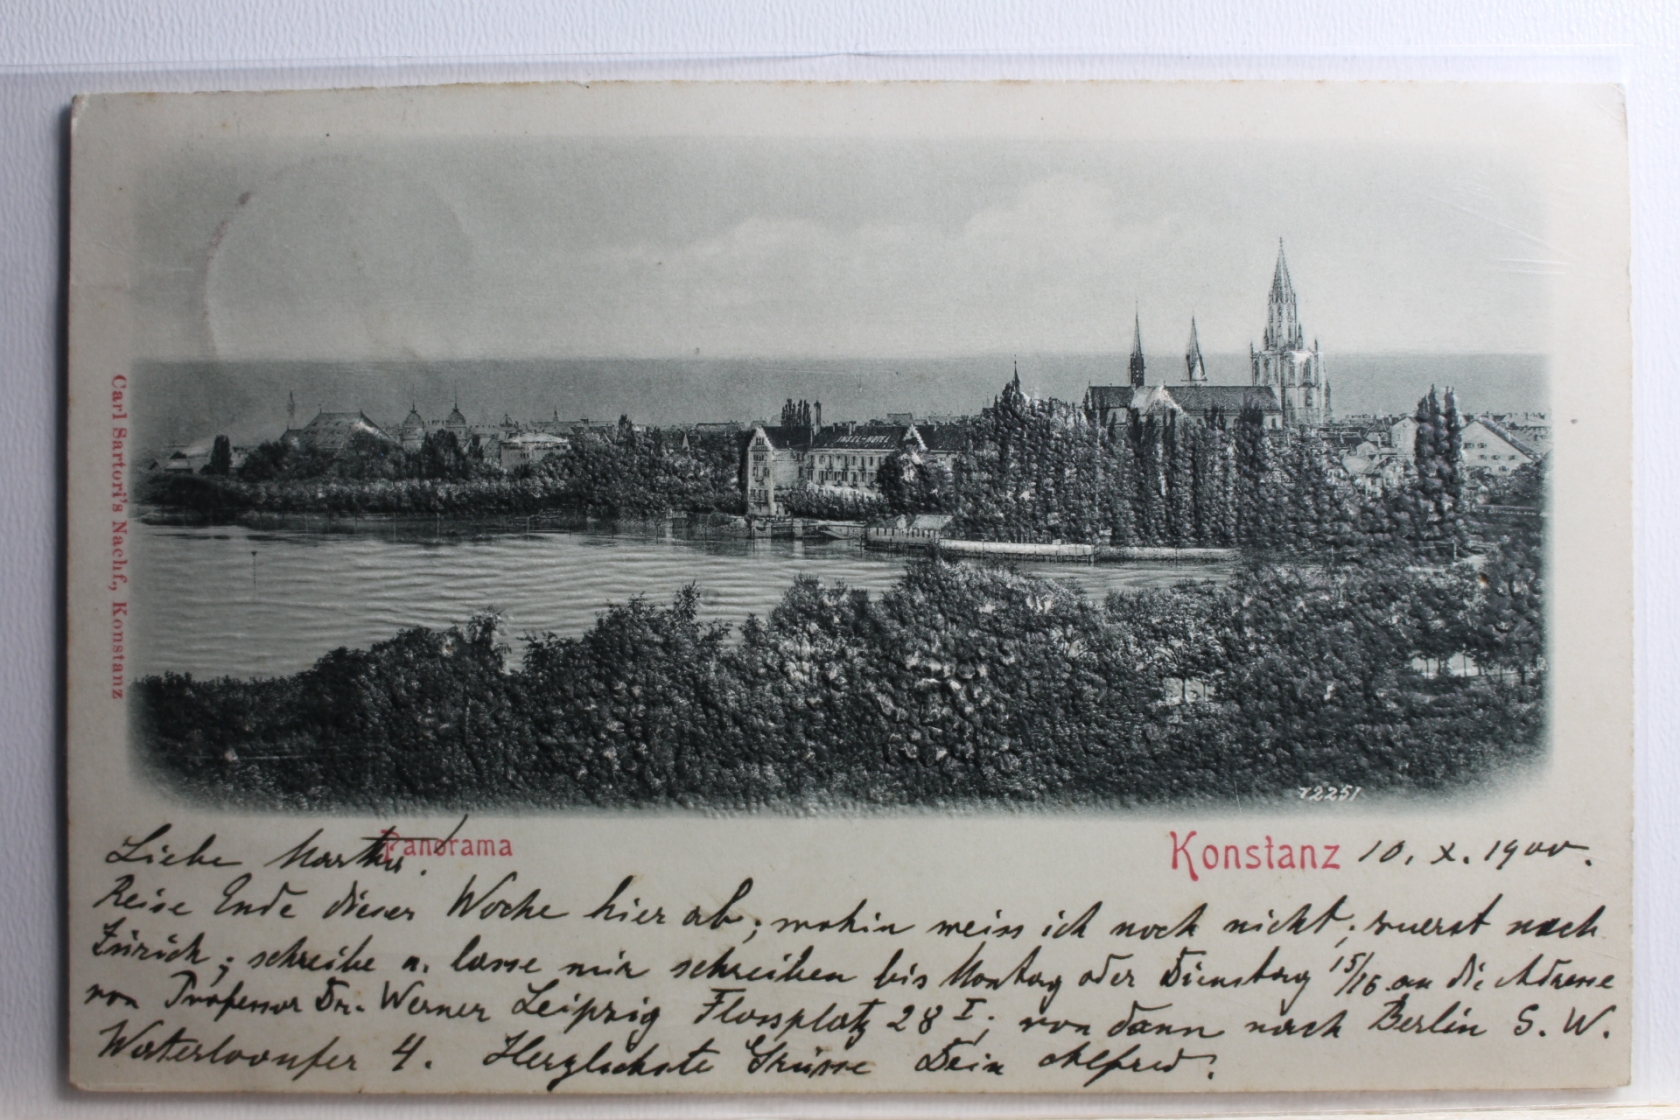 INSEL-HOTEL
Carl Sartori's Nachf., Konstanz
12251
Panorama
Konstanz 10. X. 1900.
Liebe Martha!
Reise Ende dieser Woche hier ab; wohin weiss ich noch nicht; zuerst nach
Zürich; schreibe u. lasse mir schreiben bis Montag oder Dienstag 15/16. an die Adresse
von Professor Dr. Werner Leipzig Flossplatz 28 I; von dann nach Berlin S. W.
Waterlooufer 4. Herzlichste Grüsse Dein Alfred.